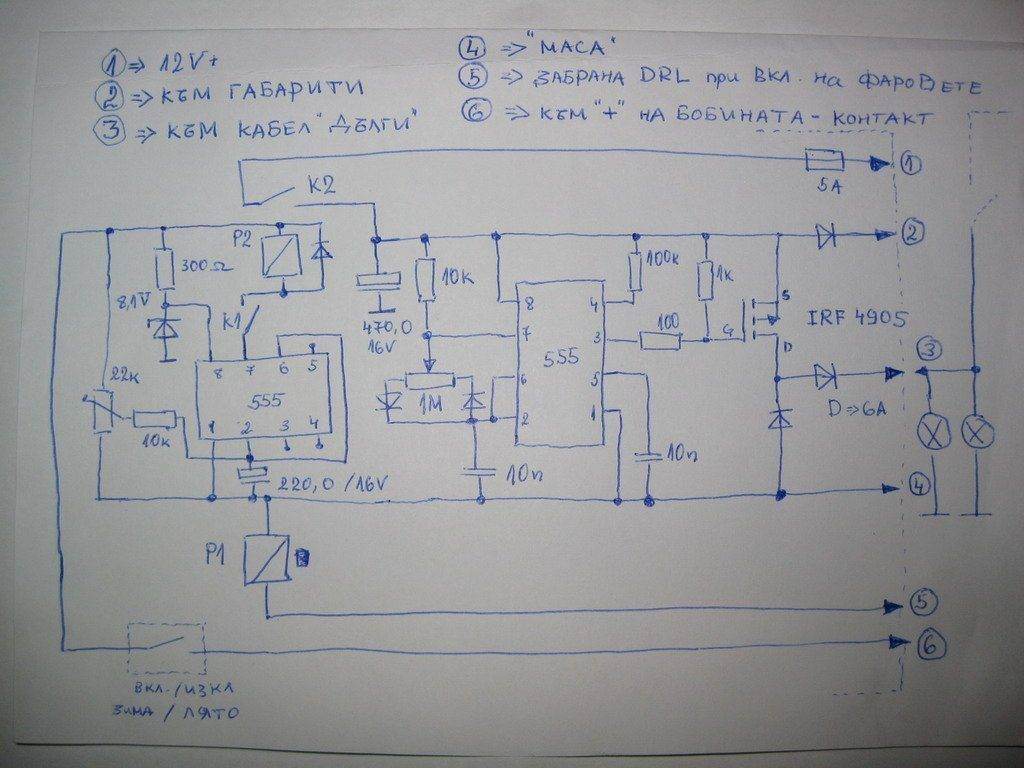 ① => 12V+
② => КЪМ ГАБАРИТИ
③ => КЪМ КАБЕЛ "ДЪЛГИ"
④ => "МАСА"
⑤ => ЗАБРАНА DRL при ВКЛ. на ФАРОВЕТЕ
⑥ => КЪМ "+" НА БОБИНАТА - КОНТАКТ
K2
5A
①
②
P2
300Ω
8,1V
K1
22k
10k
8 7 6 5
555
1 2 3 4
220,0 /16V
470,0
16V
10k
1M
10n
8 4
7 3
555
6 5
2 1
100k
1k
100
10n
G
S
D
IRF 4905
D=>6A
③
④
P1
⑤
⑥
ВКЛ./ИЗКЛ
ЗИМА / ЛЯТО